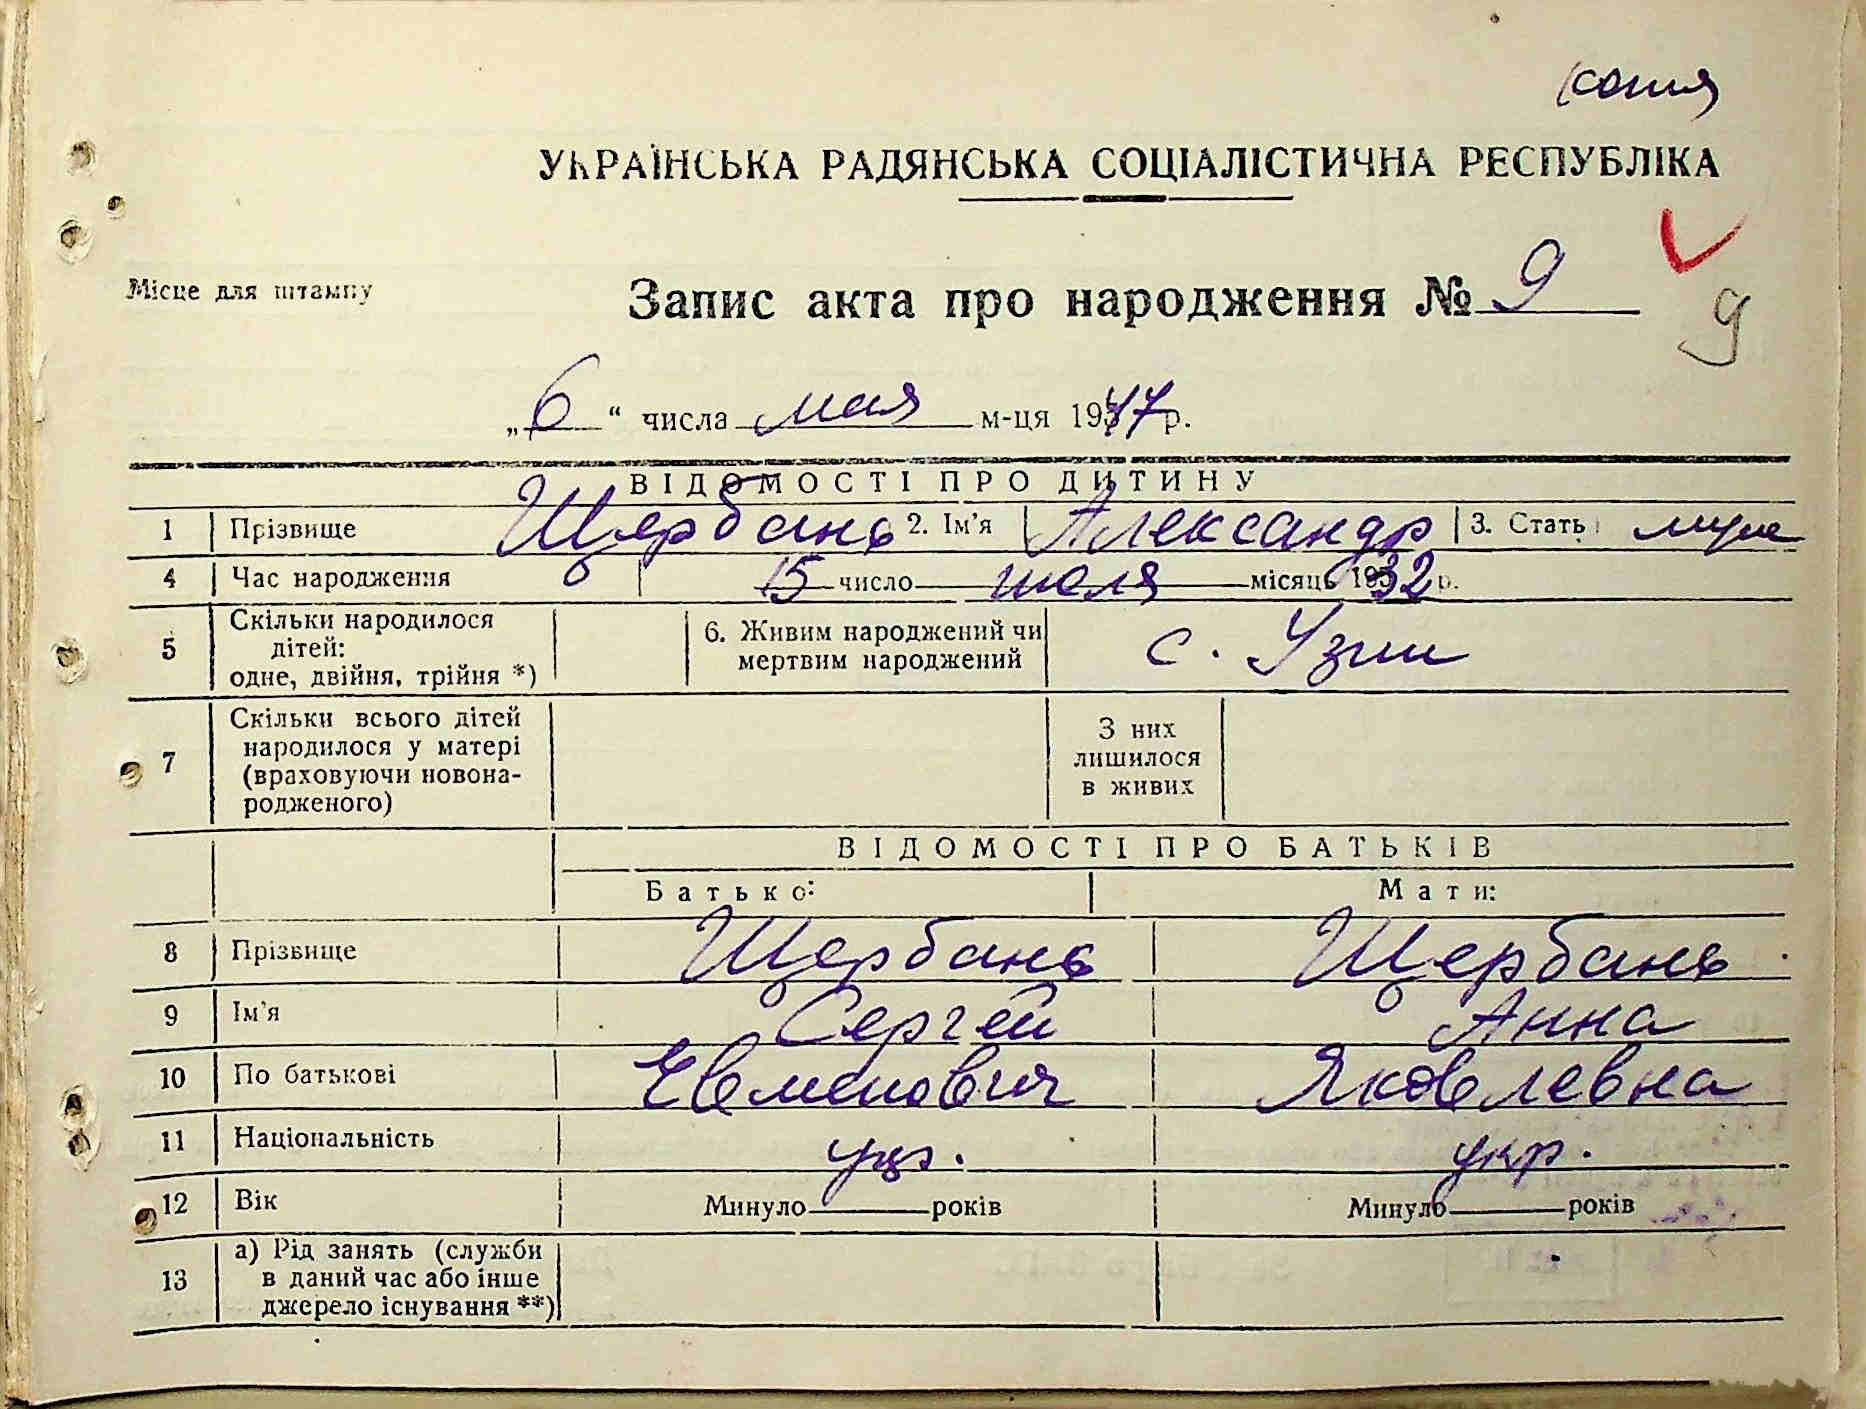 копия
УКРАЇНСЬКА РАДЯНСЬКА СОЦІАЛІСТИЧНА РЕСПУБЛІКА
Місце для штампу
Запис акта про народження № 9
9
„6“ числа мая м-ця 1947 р.
ВІДОМОСТІ ПРО ДИТИНУ
1 Прізвище Щербань 2. Ім'я Александр 3. Стать муж
4 Час народження 15 число июля місяць 1932 р.
5 Скільки народилося дітей: одне, двійня, трійня *) 6. Живим народжений чи мертвим народжений с. Узин
7 Скільки всього дітей народилося у матері (враховуючи новонародженого) З них лишилося в живих
ВІДОМОСТІ ПРО БАТЬКІВ
Батько: Мати:
8 Прізвище Щербань Щербань
9 Ім'я Сергей Анна
10 По батькові Евменович Яковлевна
11 Національність укр. укр.
12 Вік Минуло років Минуло років
13 а) Рід занять (служби в даний час або інше джерело існування **)